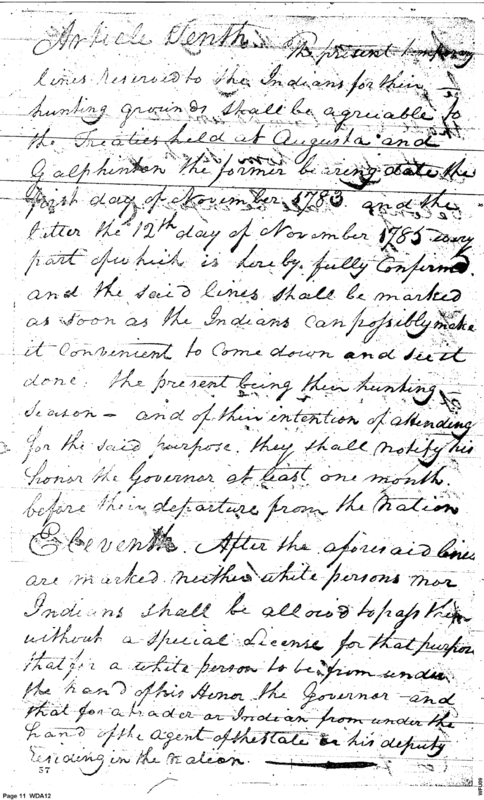 Article Tenth. The present temporary
lines reserved to the Indians for their
hunting grounds shall be agreeable to
the Treaties held at Augusta and
Galphinton the former bearing date the
first day of November 1783 and the
latter the 12th day of November 1785 every
part of which is hereby fully Confirmed
and the said lines shall be marked
as soon as the Indians can possibly make
it Convenient to Come down and see it
done: the present being their hunting
Season - and of their intention of attending
for the said purpose. they shall notify his
honor the Governor at least one month.
before their departure from the Nation
Eleventh. After the aforesaid lines
are marked neither white persons nor
Indians shall be allow'd to pass them
without a Special License for that purpose
that for a white person to be from under
the hand of his Honor the Governor and
that for a trader or Indian from under the
hand of the Agent of the State or his deputy
residing in the Nation.
57
Page 11 WDA12